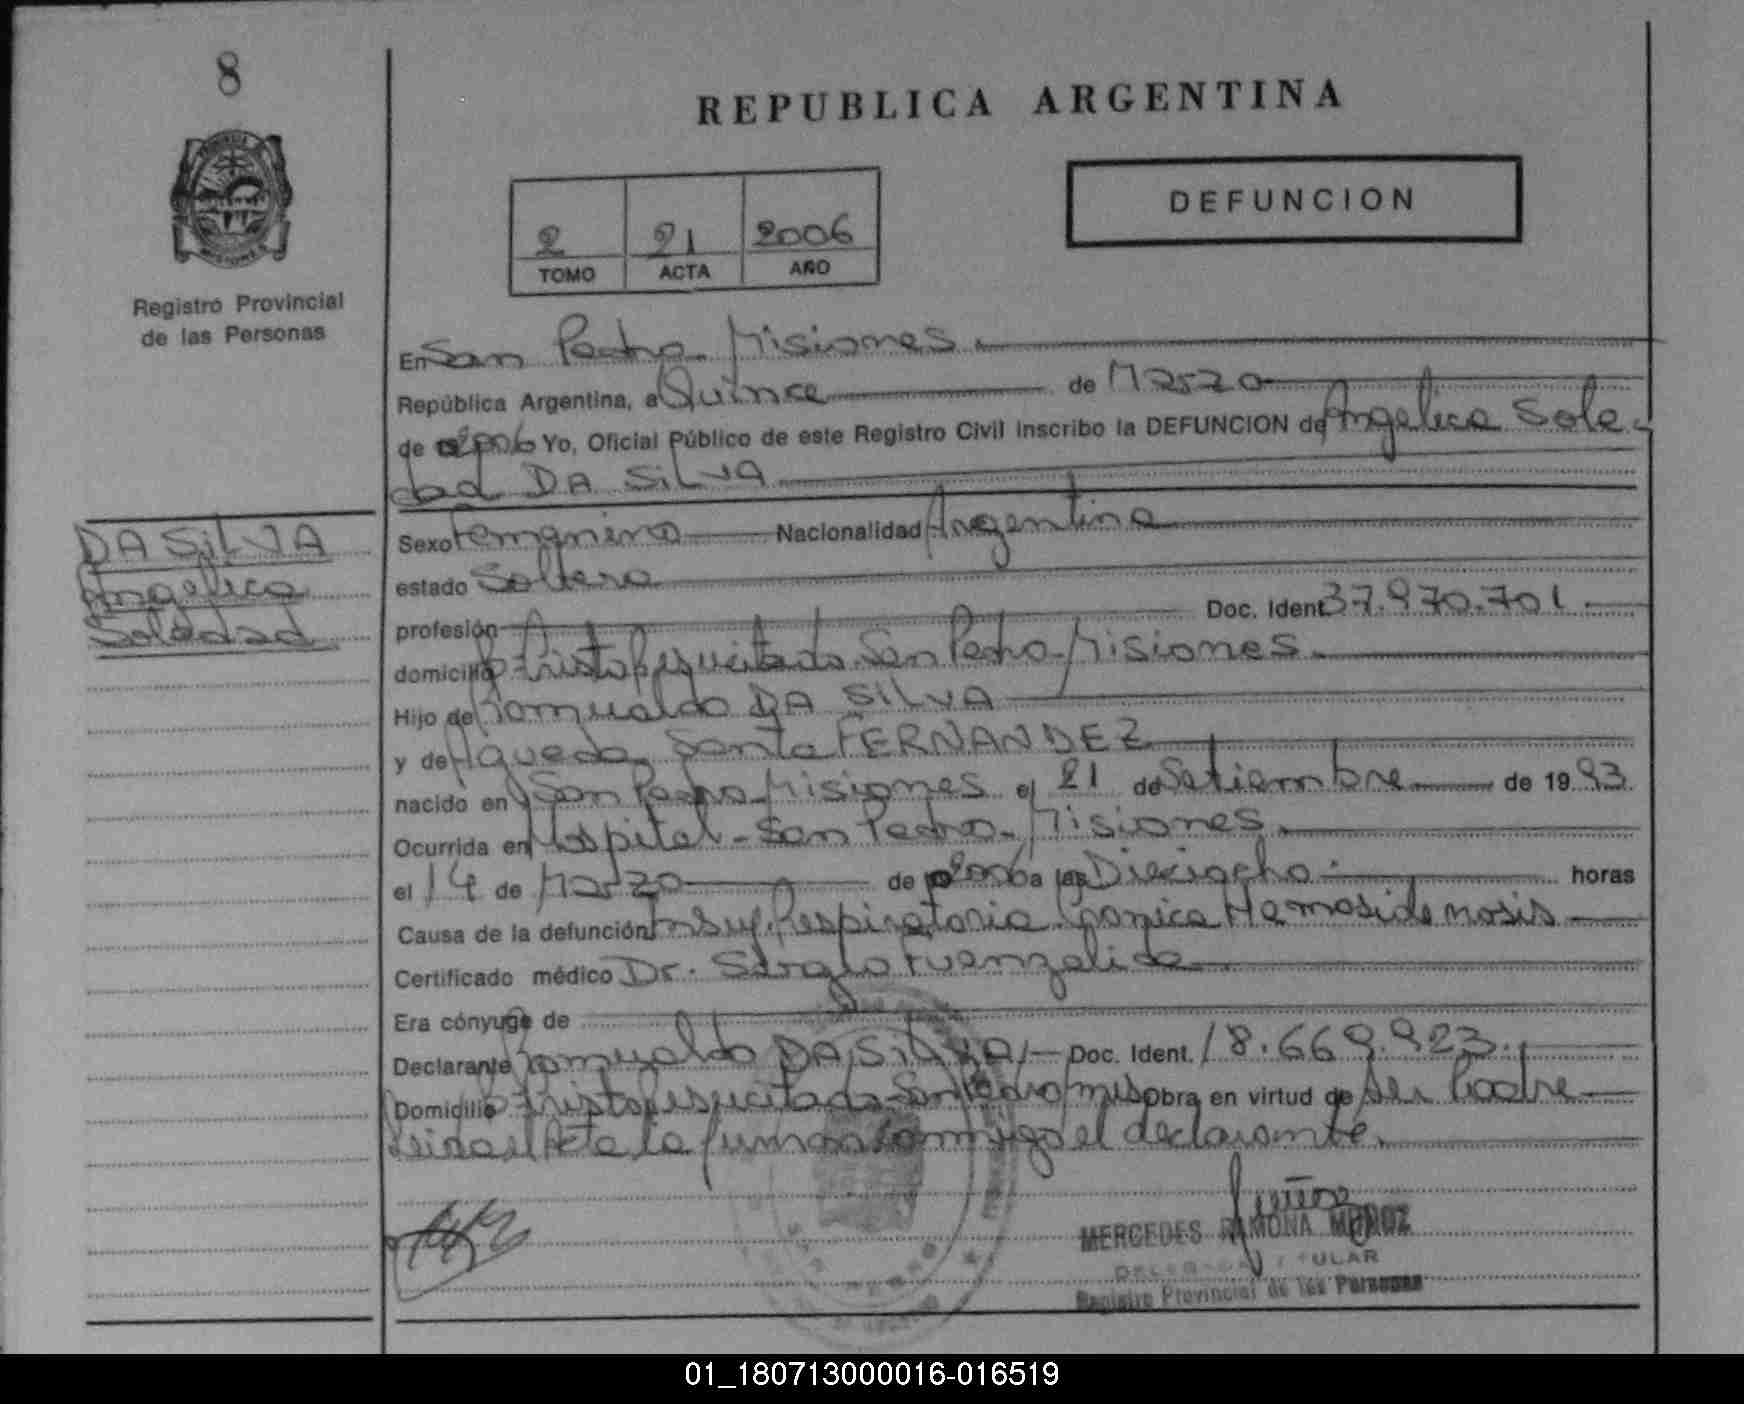 8
REPUBLICA ARGENTINA
DEFUNCION
2 21 2006
TOMO ACTA AÑO
Registro Provincial
de las Personas
En San Pedro Misiones
República Argentina, a Quince de Marzo
de 2006 Yo, Oficial Público de este Registro Civil inscribo la DEFUNCION de Angelica Sole-
dad DA SILVA
DA SILVA
Angelica
Soledad
Sexo Femenino Nacionalidad Argentina
estado Soltera
profesión Doc. Ident. 37.970.701
domicilio Cristo Resucitado San Pedro Misiones
Hijo de Romualdo DA SILVA
y de Agueda Santa FERNANDEZ
nacido en San Pedro Misiones el 21 de Setiembre de 1993
Ocurrida en Hospital - San Pedro - Misiones
el 14 de Marzo de 2006 a las Dieciocho horas
Causa de la defunción Insuf. Respiratoria Cronica Hemosidenosis
Certificado médico Dr. Sergio Fuenzalida
Era cónyuge de
Declarante Romualdo DA SILVA Doc. Ident. 18.669.923
Domicilio Cristo Resucitado San Pedro Mnes Obra en virtud de ser Padre
Leida el Acta la firma conmigo el declarante.
MERCEDES RAMONA MUÑOZ
Registro Provincial de las Personas
01_180713000016-016519